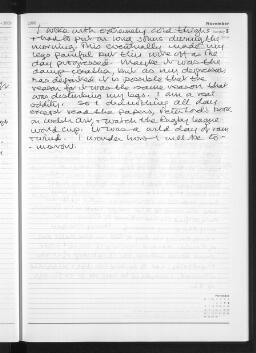 November
I woke with extremely cold thighs
& had to put on long johns during the
morning. This eventually made my
legs painful but this wore off as the
day progressed. Maybe it was the
damp weather, but as my depression
has departed it is possible that the
reason for it was the same reason that
was disturbing my legs. I am a real
oddity. So I did nothing all day
except read the papers, book
on watch & watch the Rugby League
World Cup. It was a wild day of rain
& wind. I wonder how I will be to-
morrow.
November